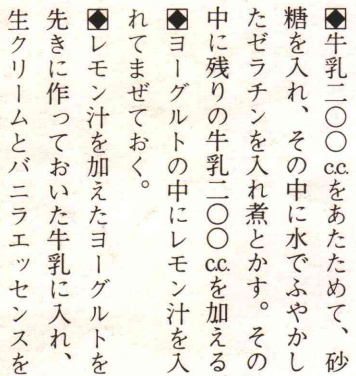 ◆牛乳二〇〇cc.をあたためて、砂
糖を入れ、その中に水でふやかし
たゼラチンを入れ煮とかす。その
中に残りの牛乳二〇〇cc.を加える
◆ヨーグルトの中にレモン汁を入
れてまぜておく。
◆レモン汁を加えたヨーグルトを
先きに作っておいた牛乳に入れ、
生クリームとバニラエッセンスを